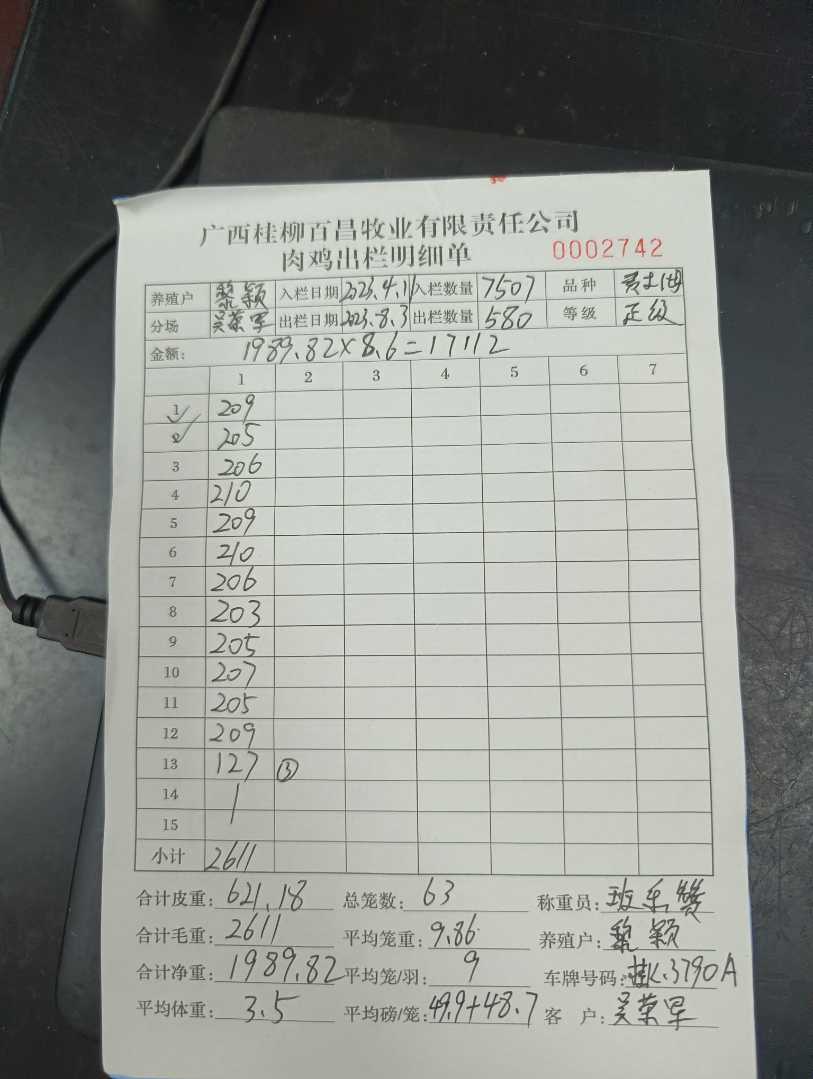 广西桂柳百昌牧业有限责任公司
肉鸡出栏明细单 0002742
养殖户 黎颖 入栏日期 2023.4.11 入栏数量 7507 品种
分场 吴荣军 出栏日期 2023.8.3 出栏数量 580 等级 正级
金额: 1989.82×8.6=17112
1 2 3 4 5 6 7
1 209
2 205
3 206
4 210
5 209
6 210
7 206
8 203
9 205
10 207
11 205
12 209
13 127 ③
14
15
小计 2611
合计皮重: 621.18 总笼数: 63 称重员:
合计毛重: 2611 平均笼重: 9.86 养殖户: 黎颖
合计净重: 1989.82 平均笼/羽: 9 车牌号码: 桂K.3790A
平均体重: 3.5 平均磅/笼: 49.9+48.7 客 户: 吴荣军